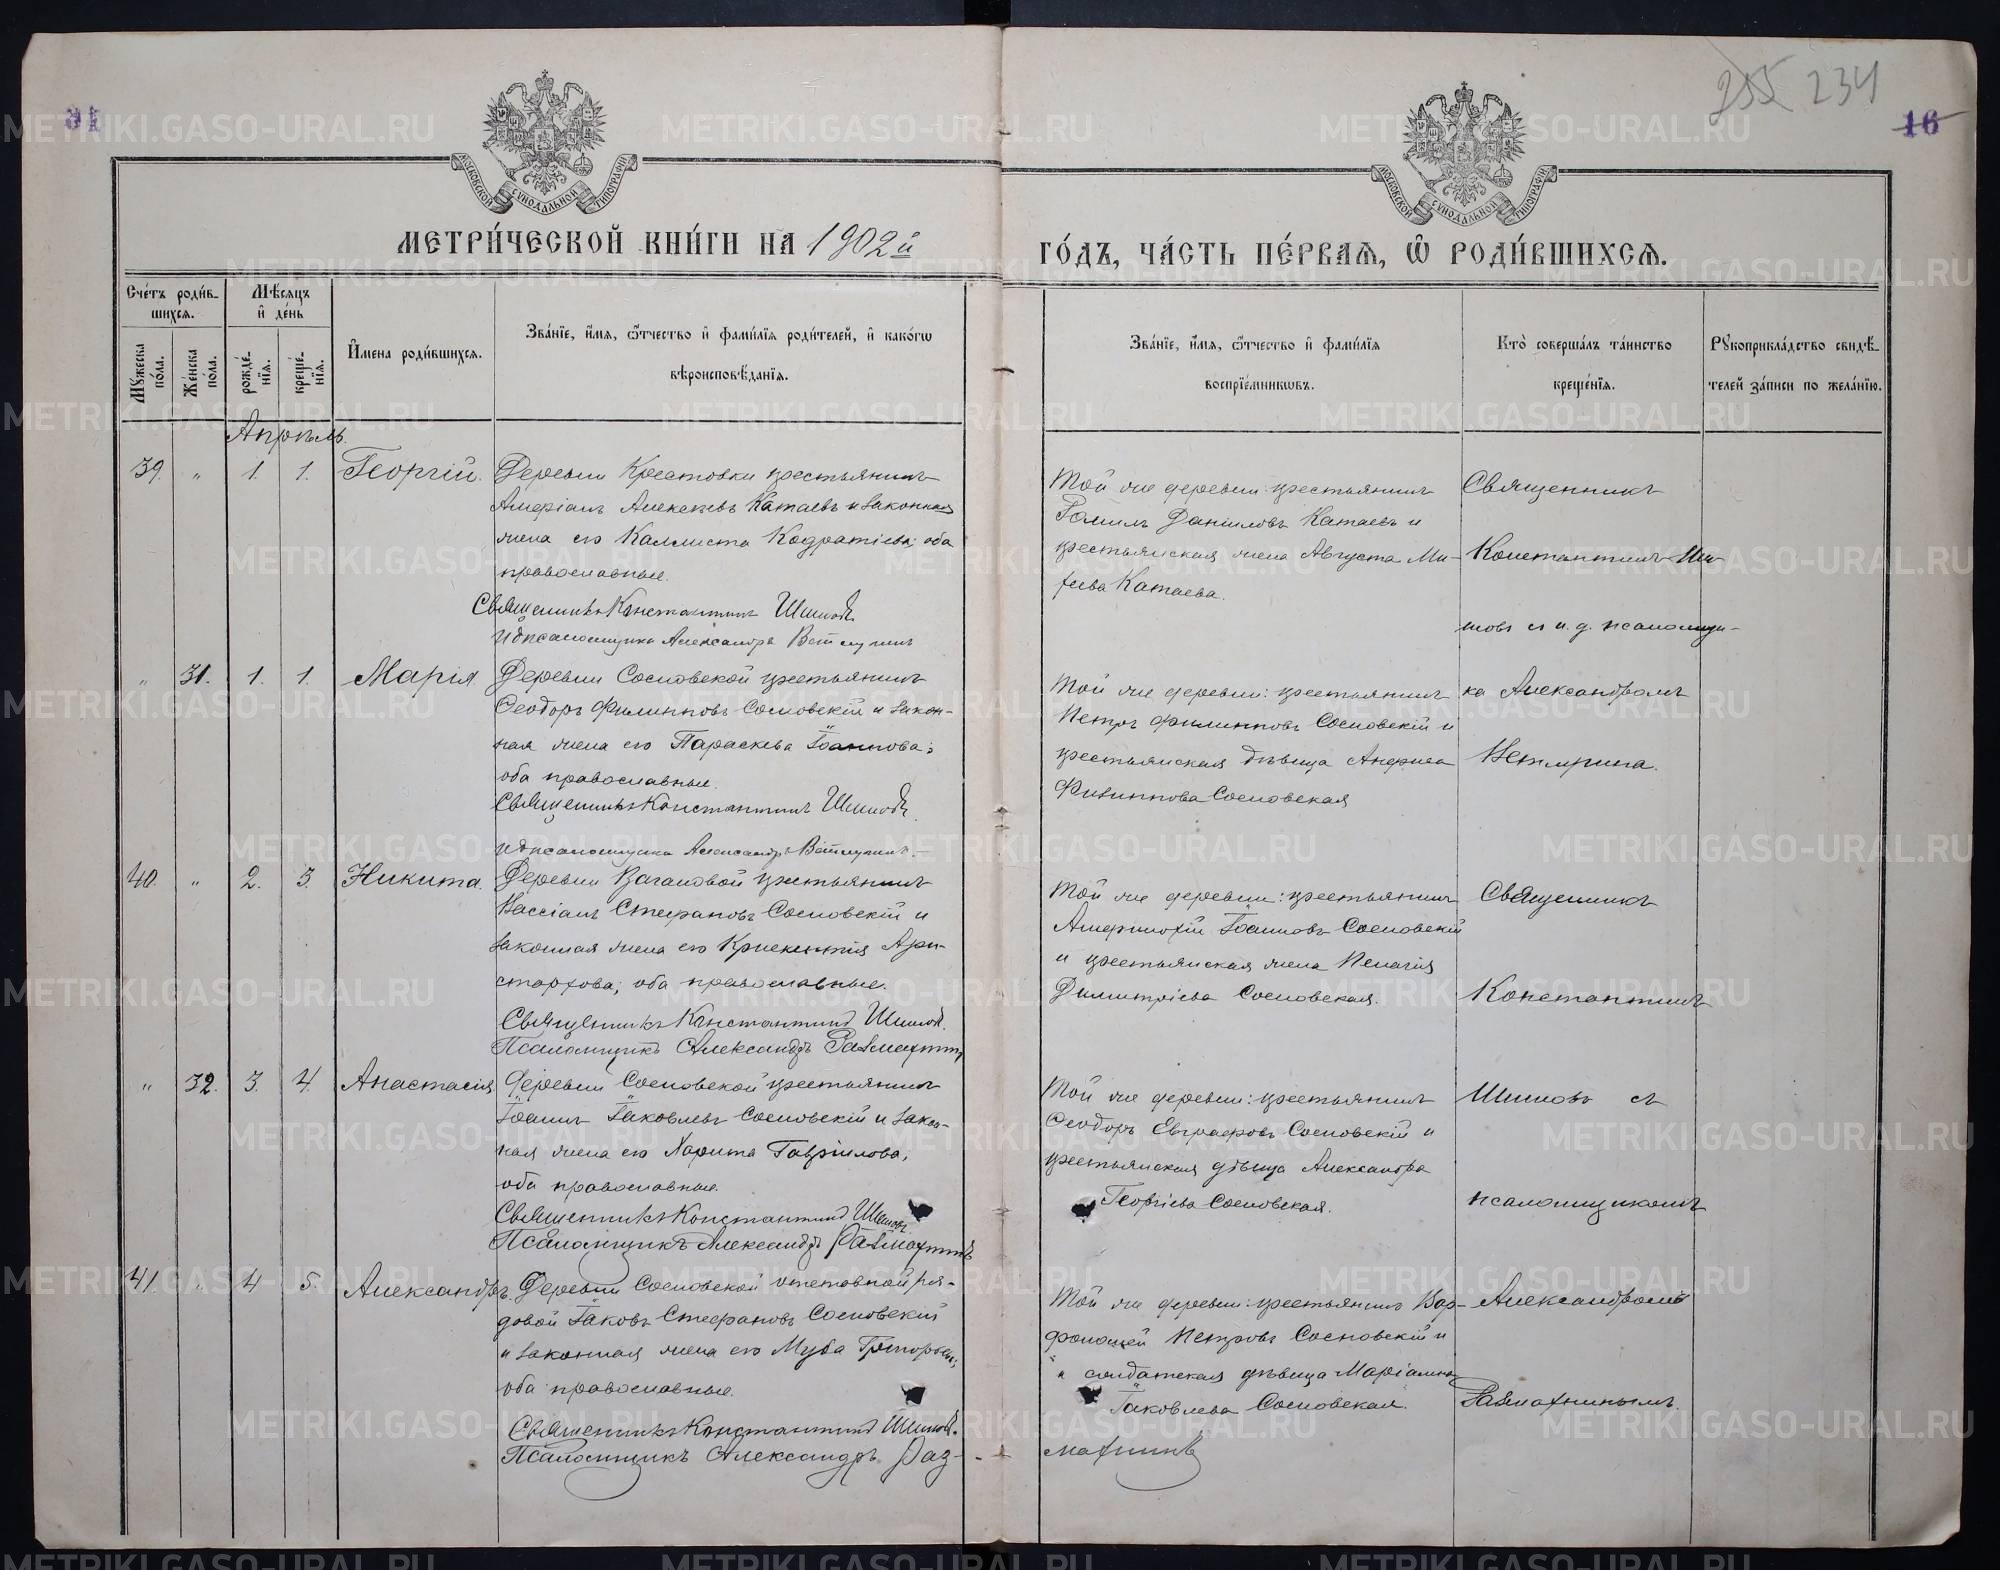 16
255 234
16
МОСКОВСКОЙ СѴНОДАЛЬНОЙ ТИПОГРАФІИ
МОСКОВСКОЙ СѴНОДАЛЬНОЙ ТИПОГРАФІИ
МЕТРИ́ЧЕСКОЙ КНИ́ГИ НА 1902й
ГО́ДЪ, ЧА́СТЬ ПЕ́РВАѦ, Ѡ҆ РОДИ́ВШИХСѦ.
Сче́тъ роди́в-
шихсѧ.
Мꙋ́жеска по́ла.
Же́нска по́ла.
Мѣ́сѧцъ и҆ де́нь
рожде́-нїѧ.
креще́-нїѧ.
И҆мена роди́вшихсѧ.
Зва́нїе, и҆́мѧ, ѻ҆́тчество и҆ фами́лїѧ роди́телей, и҆ како́гѡ
вѣроисповѣ́данїѧ.
Зва́нїе, и҆́мѧ, ѻ҆́тчество и҆ фами́лїѧ
воспрїе́мникѡвъ.
Кто̀ соверша́лъ та́инство
креще́нїѧ.
Рꙋкоприкла́дство свидѣ́-
телей за́писи по жела́нїю.
Апрѣль.
39. " 1. 1. Георгій.
Деревни Крестовки крестьянинъ
Алексѣевъ Катаевъ и законная
жена его Каллиста Кодратіева; оба
православные.
Священникъ Константинъ Шишовъ
Александръ
Той же деревни: крестьянинъ
Даніиловъ Катаевъ и
крестьянская жена Августа Ми-
Катаева.
Священникъ
Константинъ Ши-
шовъ съ и. д. псаломщи-
" 31. 1. 1. Марія
Деревни Сосновской крестьянинъ
Ѳеодоръ Филипповъ Сосновскій и закон-
ная жена его Параскева Іоаннова;
оба православные.
Священникъ Константинъ Шишовъ
Александръ
Той же деревни: крестьянинъ
Петръ Филипповъ Сосновскій и
крестьянская дѣвица
Филиппова Сосновская
ка Александромъ
40. " 2. 3. Никита.
Деревни Вагановой крестьянинъ
Кассіанъ Стефановъ Сосновскій и
законная жена его Ари-
стархова; оба православные.
Священникъ Константинъ Шишовъ.
Псаломщикъ Александръ Размахнинъ
Той же деревни: крестьянинъ
Амфилохій Іоанновъ Сосновскій
и крестьянская жена Пелагія
Димитріева Сосновская.
Священникъ
Константинъ
" 32. 3. 4. Анастасія
Деревни Сосновской крестьянинъ
Іоаннъ Іаковлевъ Сосновскій и закон-
ная жена его Харита Гавріилова,
оба православные.
Священникъ Константинъ Шишовъ
Псаломщикъ Александръ Размахнинъ
Той же деревни: крестьянинъ
Ѳеодоръ Евграфовъ Сосновскій и
крестьянская дѣвица Александра
Георгіева Сосновская.
Шишовъ съ
псаломщикомъ
41. " 4 5. Александръ.
Деревни Сосновской отставной ря-
довой Іаковъ Стефановъ Сосновскій
и законная жена его Григорьева;
оба православные.
Священникъ Константинъ Шишовъ.
Псаломщикъ Александръ Раз-
махнинъ
Той же деревни: крестьянинъ Вар-
фоломей Петровъ Сосновскій и
" солдатская дѣвица Маріамна
Іаковлева Сосновская.
Александромъ
Размахнинымъ.
METRIKI.GASO-URAL.RU